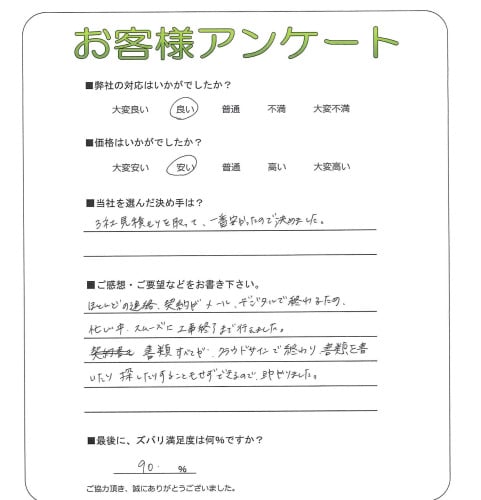 お客様アンケート
■弊社の対応はいかがでしたか?
大変良い 良い 普通 不満 大変不満
■価格はいかがでしたか?
大変安い 安い 普通 高い 大変高い
■当社を選んだ決め手は?
3社見積もりを取って、一番安かったので決めました。
■ご感想・ご要望などをお書き下さい。
ほとんどの連絡、契約がメール、デジタルで終わるため、
忙しい中、スムーズに工事終了まで行えました。
書類すべてが、クラウドサインで終わり、書類を書
いたり探したりすることもせずできるので、助かりました。
■最後に、ズバリ満足度は何%ですか?
90. %
ご協力頂き、誠にありがとうございました。